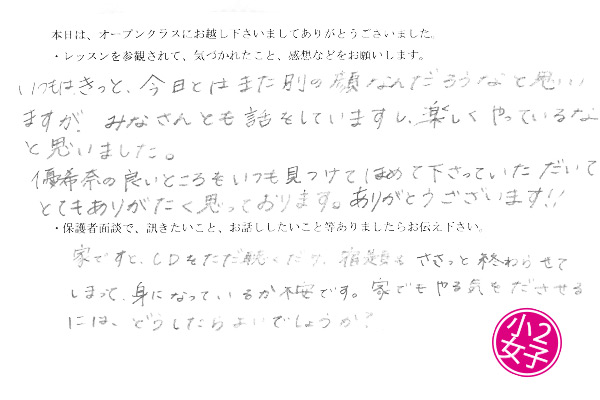 本日は、オープンクラスにお越し下さいましてありがとうございました。
・レッスンを参観されて、気づかれたこと、感想などをお願いします。
いつもはきっと、今日とはまた別の顔なんだろうなと思い
ますが、みなさんとも話をしていますし、楽しくやっているな
と思いました。
優希奈の良いところもいつも見つけてほめて下さっていただいて
とてもありがたく思っております。ありがとうございます!!
・保護者面談で、訊きたいこと、お話ししたいこと等ありましたらお伝え下さい。
家ですと、CDをただ聴くだけ、宿題も ささっと 終わらせて
しまって、身になっているか不安です。家でもやる気をださせる
には、どうしたらよいでしょうか?
小2
女子